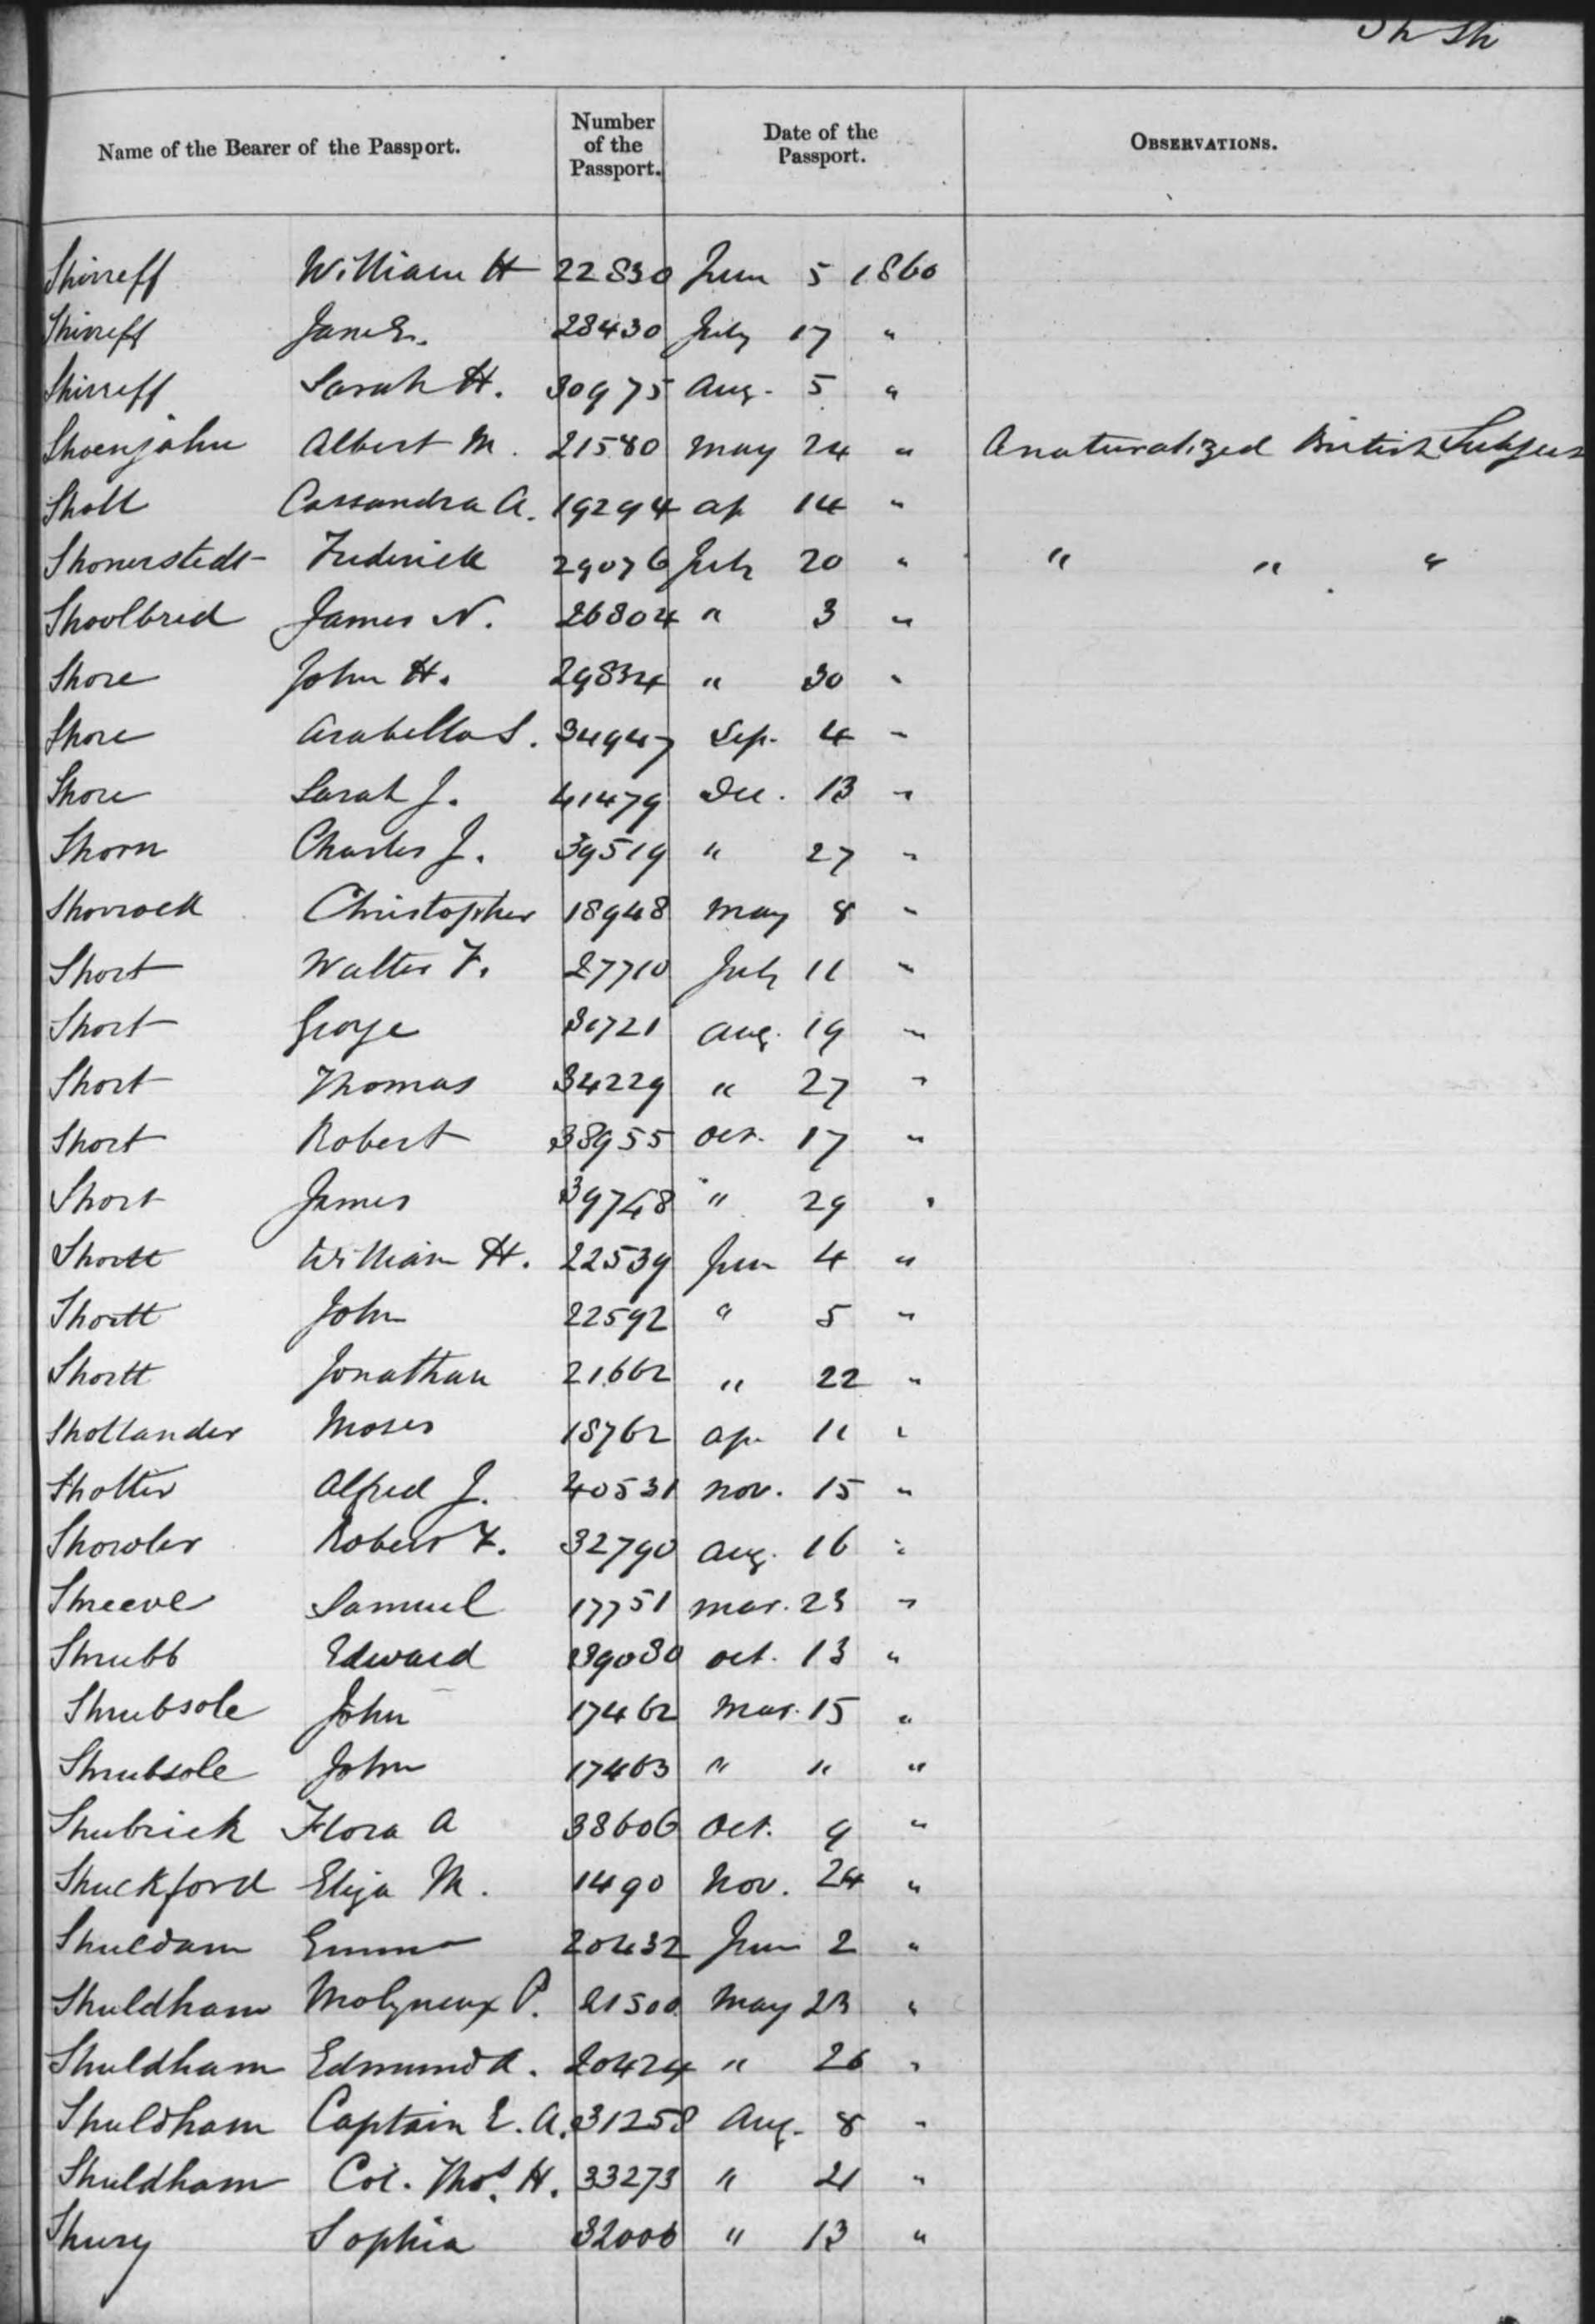 Sh Sh
Name of the Bearer of the Passport. Number of the Passport. Date of the Passport. OBSERVATIONS.
Shirreff William H 22830 Jun 5 1860
Shirreff Jane E. 28430 July 17 "
Shirreff Sarah H. 30975 Aug. 5 "
Shoenjahn Albert M. 21580 May 24 " A naturalized British Subject
Sholl Cassandra A. 19294 Ap 14 "
Shonerstedt Frederick 29076 July 20 " " " "
Shoolbred James N. 26804 " 3 "
Shore John H. 29834 " 30 "
Shore Arabella S. 34947 Sep. 4 "
Shore Sarah J. 41479 Dec. 13 "
Shorn Charles J. 39519 " 27 "
Shorrock Christopher 18948 May 8 "
Short Walter F. 27710 July 11 "
Short George 31721 Aug. 19 "
Short Thomas 34229 " 27 "
Short Robert 38955 Oct. 17 "
Short James 39748 " 29 "
Shortt William H. 22539 Jun 4 "
Shortt John 22592 " 5 "
Shortt Jonathan 21662 " 22 "
Shottander Moses 18762 Ap 11 "
Shotter Alfred J. 40531 Nov. 15 "
Showler Robert F. 32790 Aug. 16 "
Shreeve Samuel 17751 Mar. 23 "
Shrubb Edward 39080 Oct. 13 "
Shrubsole John 17462 Mar. 15 "
Shrubsole John 17463 " " "
Shubrick Flora A 38606 Oct. 9 "
Shuckford Eliza M. 1490 Nov. 24 "
Shuldam Emma 20432 Jun 2 "
Shuldham Molyneux P. 21500 May 23 "
Shuldham Edmund A. 20424 " 26 "
Shuldham Captain E. A. 31258 Aug. 8 "
Shuldham Col. Thos. H. 33273 " 21 "
Shury Sophia 32006 " 13 "